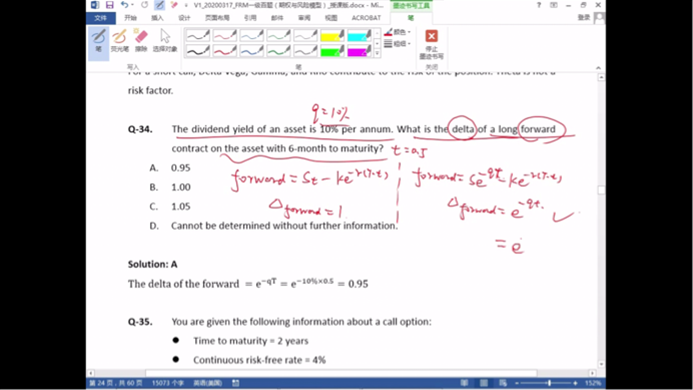 V1_20200317_FRM一级百题（期权与风险模型）_授课版.docx - Mi...
墨迹书写工具
登录
文件
开始
插入
设计
页面布局
引用
邮件
审阅
视图
ACROBAT
笔
笔
荧光笔
擦除
选择对象
颜色
粗细
停止
墨迹书写
笔
关闭
For a short call, Delta Vega, Gamma, and Rho contribute to the risk of the position. Theta is not a
risk factor.
q=10%
Q-34. The dividend yield of an asset is 10% per annum. What is the delta of a long forward
contract on the asset with 6-month to maturity? t=0.5
A. 0.95
B. 1.00
C. 1.05
D. Cannot be determined without further information.
forward = St - ke^-r(T-t)
Δforward = 1
forward = Se^-qt - ke^-r(T-t)
Δforward = e^-qt ✓
= e
Solution: A
The delta of the forward = e^−qT = e^−10%×0.5 = 0.95
Q-35. You are given the following information about a call option:
● Time to maturity = 2 years
● Continuous risk-free rate = 4%
第 24 页，共 60 页 15073 个字 英语(美国) 152%